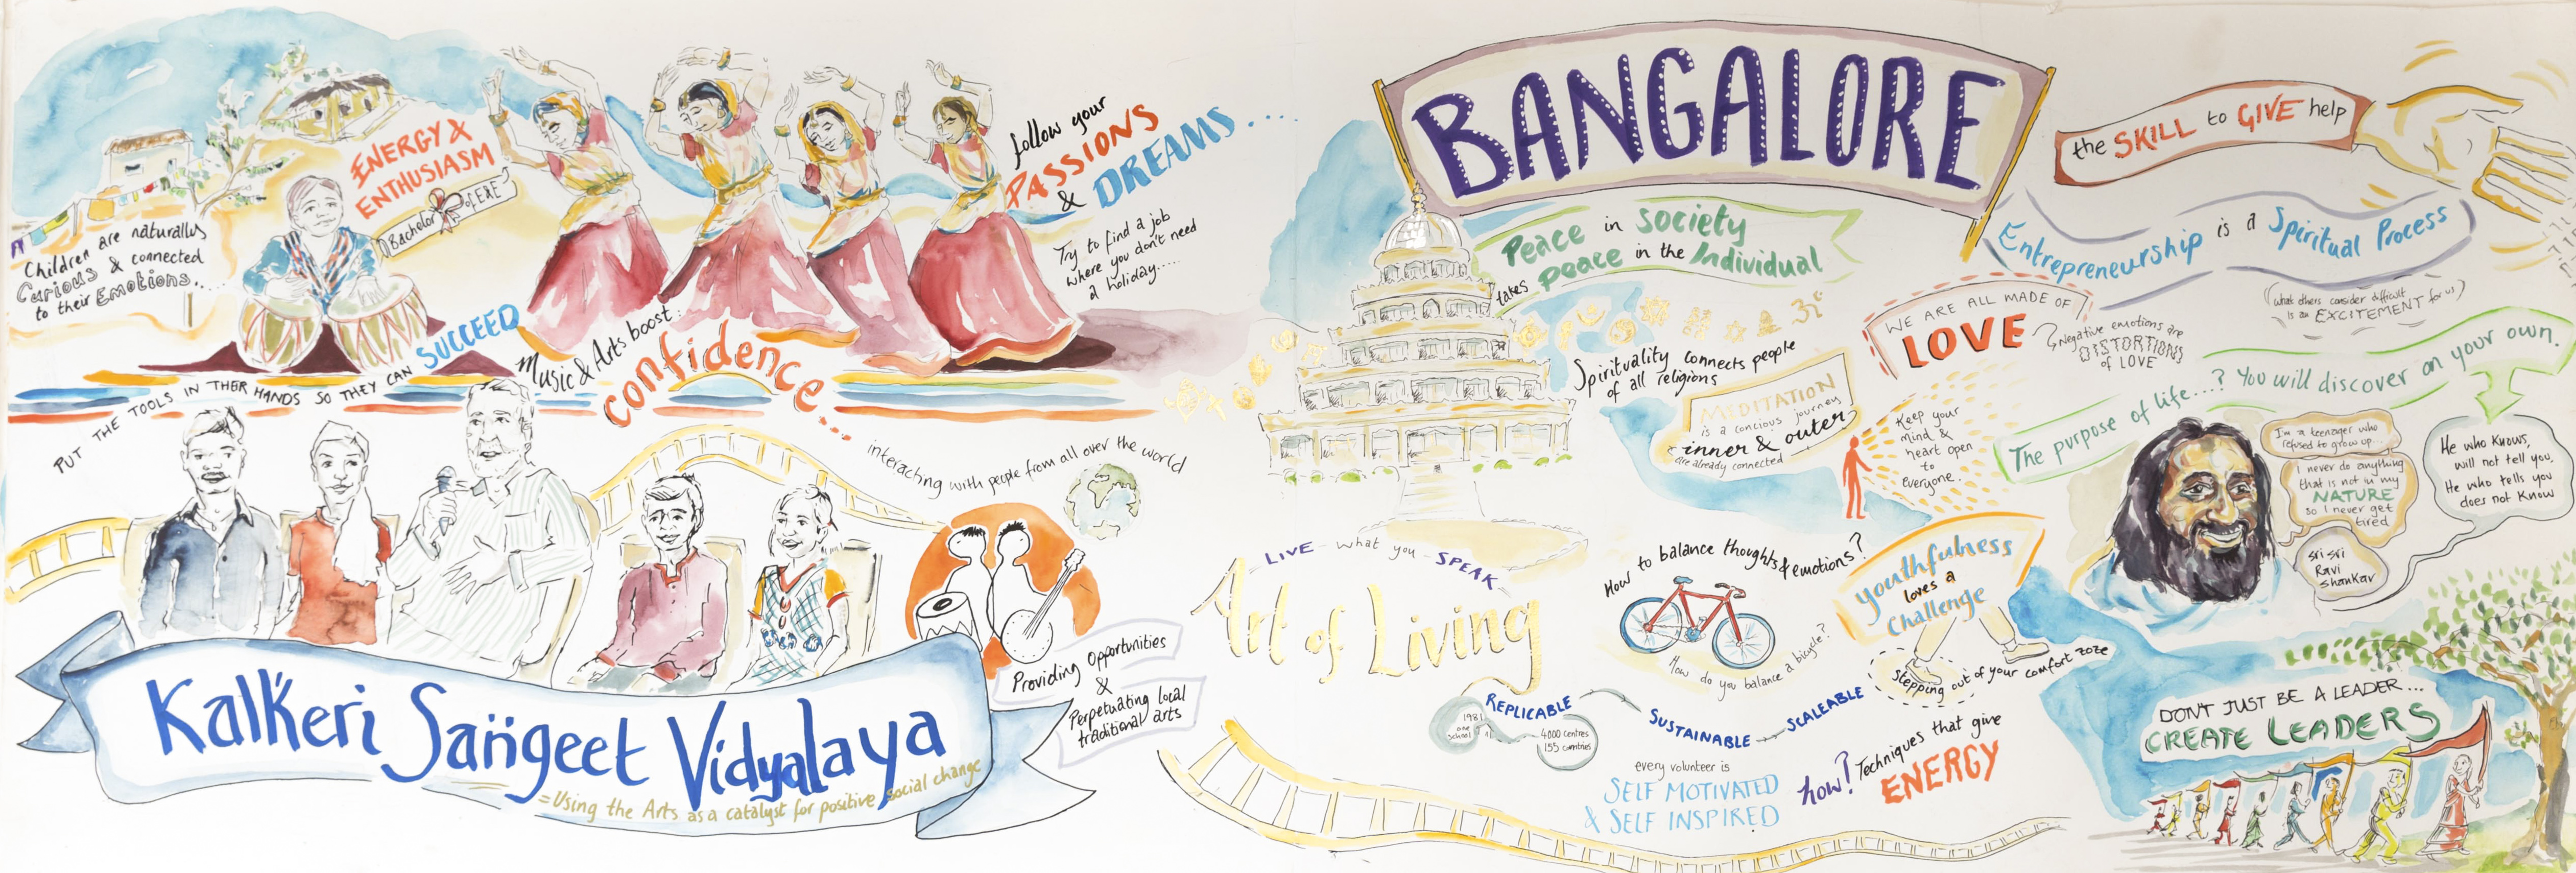 ENERGY &
ENTHUSIASM
Bachelor of LIFE
Children are naturally
Curious & connected
to their Emotions...
follow your
PASSIONS
& DREAMS....
Try to find a job
where you don't need
a holiday.....
PUT THE TOOLS IN THER HANDS SO THEY CAN SUCCEED
Music & Arts boost:
confidence...
interacting with people from all over the world
Providing Opportunities
&
Perpetuating local
traditional arts
Kalkeri Sangeet Vidyalaya
= Using the Arts as a catalyst for positive social change
BANGALORE
Peace in society
takes peace in the Individual
Spirituality connects people
of all religions
MEDITATION
is a concious journey
inner & outer
are already connected
WE ARE ALL MADE OF
LOVE
Negative emotions are
DISTORTIONS
of LOVE
Keep your
mind &
heart open
to
everyone.
the SKILL to GIVE help
Entrepreneurship is a Spiritual Process
(what others consider difficult
is an EXCITEMENT for us)
The purpose of life....? You will discover on your own.
I'm a teenager who
refused to grow up...
I never do anything
that is not in my
NATURE
so I never get
tired
Sri Sri
Ravi
Shankar
He who Knows,
will not tell you,
He who tells you
does not Know
LIVE - what you - SPEAK
Art of Living
How to balance thoughts & emotions?
How do you balance a bicycle?
youthfulness
loves a
Challenge
Stepping out of your comfort zoze
REPLICABLE
1981
one
school
4000 centres
155 countries
SUSTAINABLE
SCALEABLE
every volunteer is
SELF MOTIVATED
& SELF INSPIRED
how? Techniques that give
ENERGY
DON'T JUST BE A LEADER...
CREATE LEADERS